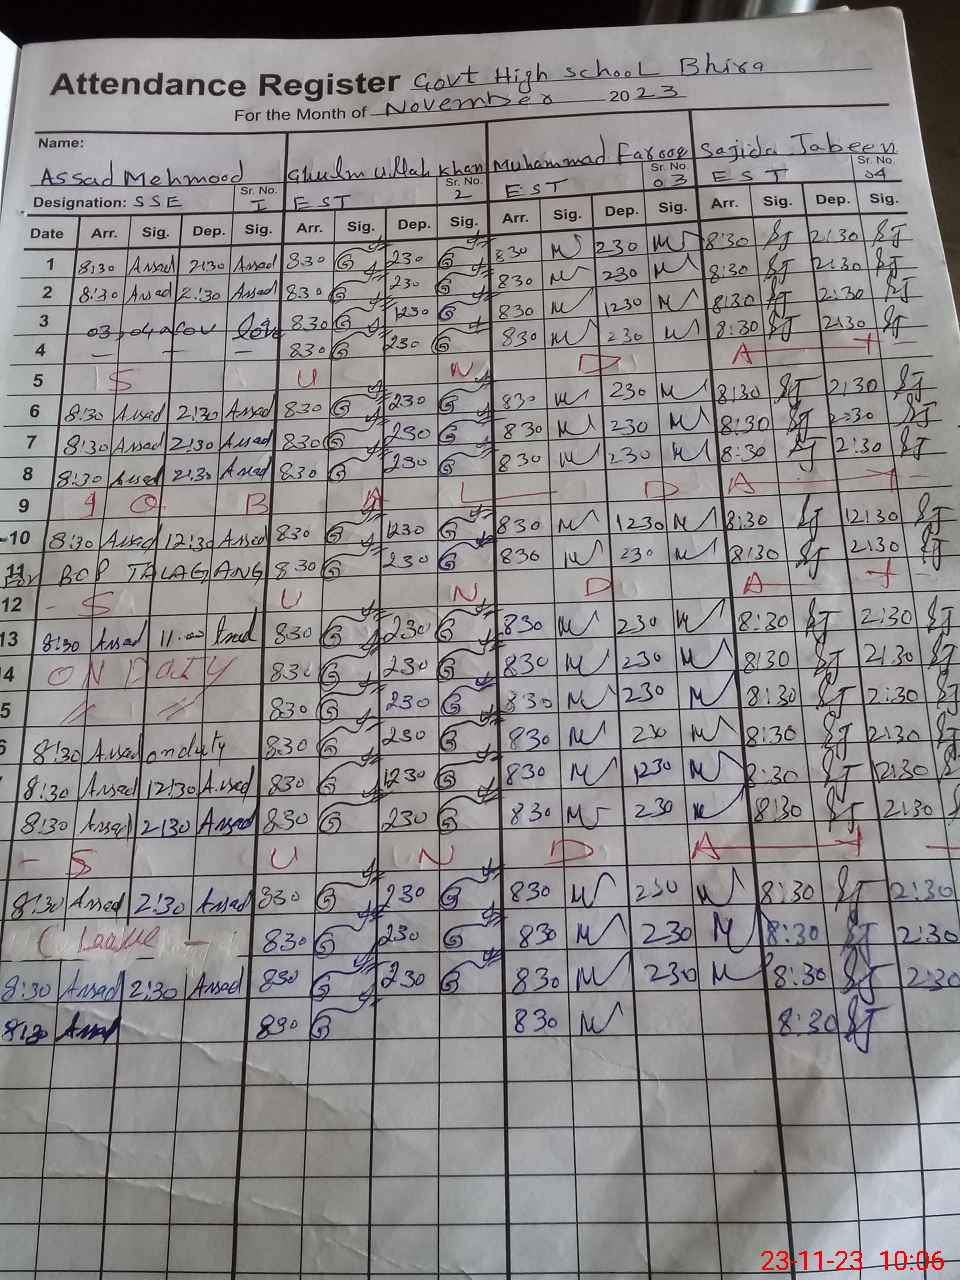 Attendance Register Govt High school Bhira
For the Month of November 2023
Name:
Assad Mehmood Ghulm ullah khan Muhammad Farooq Sajida Jabeen
Designation: SSE Sr. No. I EST Sr. No. 2 EST Sr. No. 03 EST Sr. No. 04
Date Arr. Sig. Dep. Sig. Arr. Sig. Dep. Sig. Arr. Sig. Dep. Sig. Arr. Sig. Dep. Sig.
1 8:30 Assad 2:30 Assad 830 G 230 G 830 M 230 M 8:30 SJ 2:30 SJ
2 8:30 Assad 2:30 Assad 830 G 230 G 830 M 230 M 8:30 SJ 2:30 SJ
3 03,04 830 G 1230 G 830 M 1230 M 8:30 SJ 2:30 SJ
4 — — — 830 G 230 G 830 M 230 M 8:30 SJ 2:30 SJ
5 S U N D A
6 8:30 Assad 2:30 Assad 830 G 230 G 830 M 230 M 8:30 SJ 2:30 SJ
7 8:30 Assad 2:30 Assad 830 G 230 G 830 M 230 M 8:30 SJ 2:30 SJ
8 8:30 Assad 2:30 Assad 830 G 230 G 830 M 230 M 8:30 SJ 2:30 SJ
9 I Q B A L D A
10 8:30 Assad 12:30 Assad 830 G 1230 G 830 M 1230 M 8:30 SJ 12:30 SJ
11 For BOP TALAGANG 830 G 230 G 830 M 230 M 8:30 SJ 2:30 SJ
12 - S U N D A
13 8:30 Assad 11:00 Assad 830 G 230 G 830 M 230 M 8:30 SJ 2:30 SJ
4 ON Duty 830 G 230 G 830 M 230 M 8:30 SJ 2:30 SJ
5 // // 830 G 230 G 830 M 230 M 8:30 SJ 2:30 SJ
6 8:30 Assad on duty 830 G 230 G 830 M 230 M 8:30 SJ 2:30 SJ
8:30 Assad 12:30 Assad 830 G 1230 G 830 M 1230 M 8:30 SJ 2:30
8:30 Assad 2:30 Assad 830 G 230 G 830 M 230 M 8:30 SJ 2:30
- S U N D A
8:30 Assad 2:30 Assad 830 G 230 G 830 M 230 M 8:30 SJ 2:30
C Leave — 830 G 230 G 830 M 230 M 8:30 SJ 2:30
8:30 Assad 2:30 Assad 830 G 230 G 830 M 230 M 8:30 SJ 2:30
8:30 Assad 830 G 830 M 8:30 SJ
23-11-23 10:06